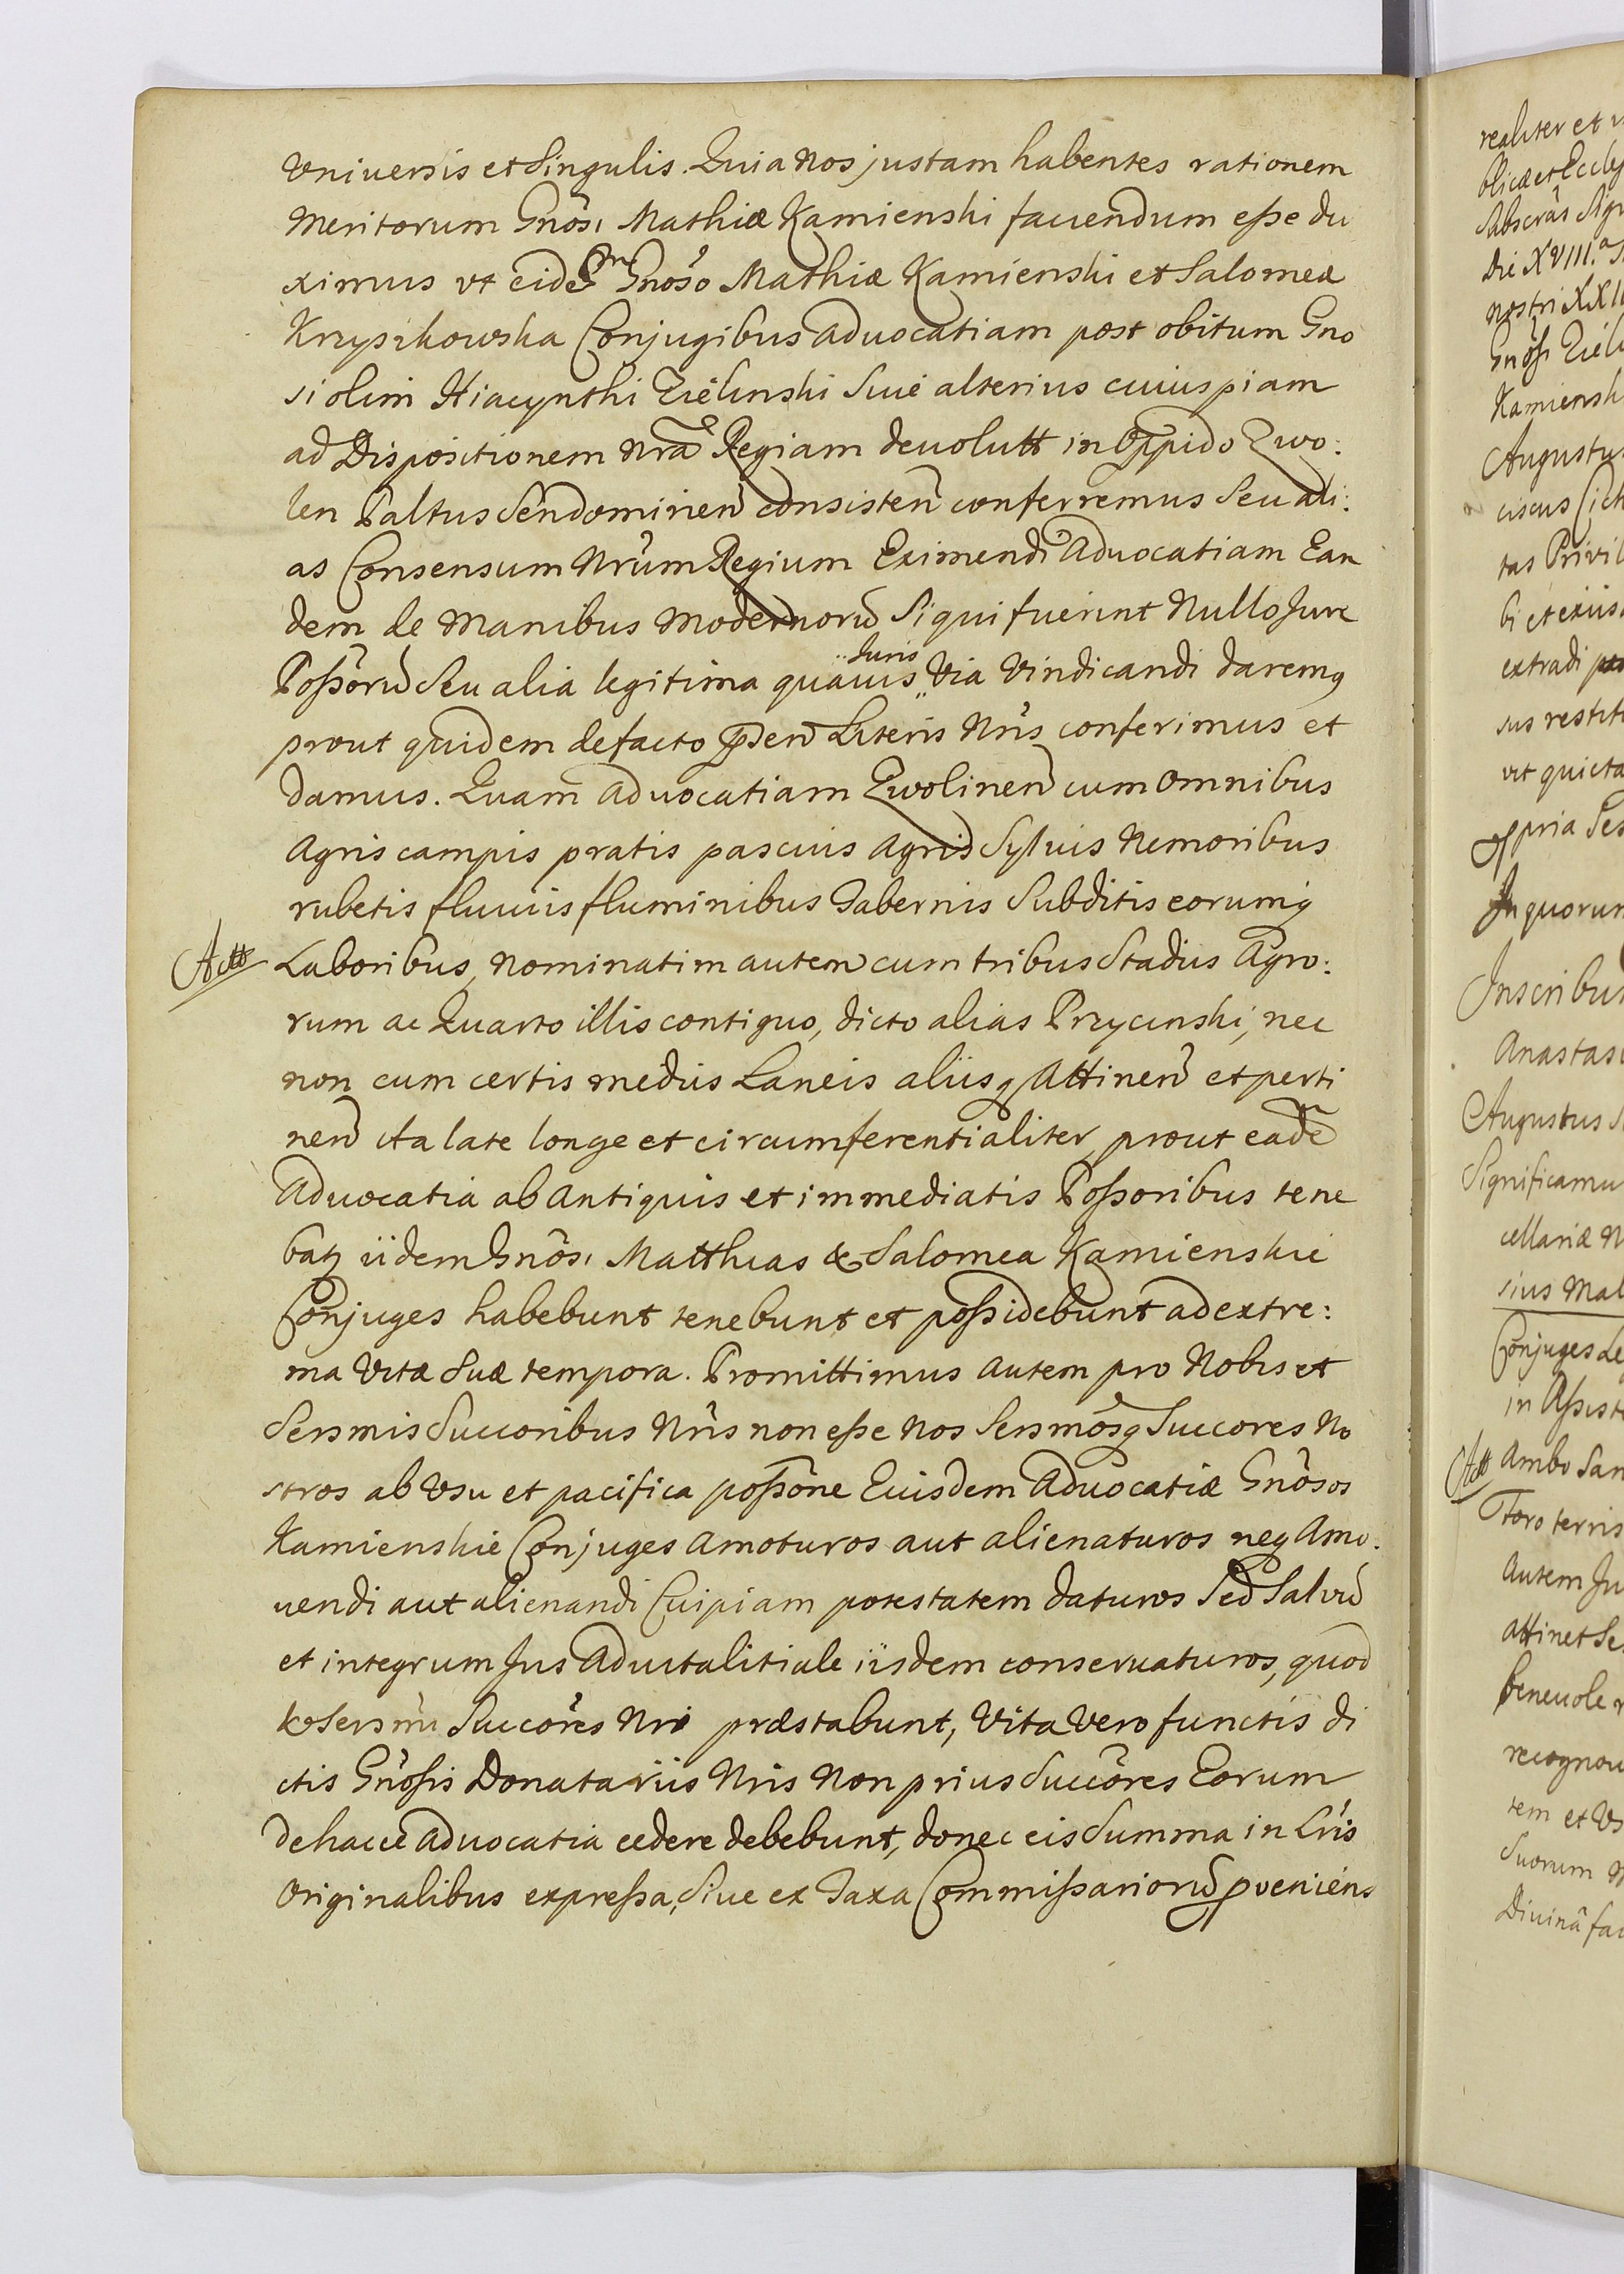 Universis et Singulis. Quia Nos justam habentes rationem
Meritorum Gnosi Mathiæ Kamienski fauendum eße du
ximus vt eidem Gnoso Mathiæ Kamienski et Salomeæ
Krzyszkowska Conjugibus Aduocatiam post obitum Gno
si olim Hiacynthi Zielinski Siue alterius cuiuspiam
ad Dispositionem Nrã Regiam deuolutt in Oppido Zwo:
len Paltus Sendomirien consisten conferremus Seu ali:
as Consensum Nrum Regium Eximendi Aduocatiam Ean
dem de Manibus Modernorũ Si qui fuerint Nullo Jure
Poßorũ Seu alia legitima quauis Juris Via Vindicandi daremq
prout quidem defacto pñden Literis Nris conferimus et
damus. Quam Aduocatiam Zwolinen cum omnibus
Agris campis pratis pascuis Agris Syluis Nemoribus
rubetis fluuiis fluminibus Tabernis Subditis eorumq
Actt Laboribus, nominatim autem cum tribus Stadiis Agro:
rum ac Quarto illis contiguo, dicto alias Przycinski, nec
non cum certis mediis Laneis aliisq Attinen et perti
nen ita late longe et circumferentialiter, prout eadẽ
Aduocatia ab Antiquis et immediatis Poßoribus tene
batz iidem Gnosi Matthias & Salomea Kamienskie
Conjuges habebunt tenebunt et poßidebunt ad extre:
ma Vitæ Suæ tempora. Promittimus autem pro Nobis et
Sersmis Succoribus Nris non eße Nos Sersmosq Succores No
stros ab Vsu et pacifica poßone Eiusdem Aduocatiæ Gnosos
Kamienskie Conjuges Amoturos aut alienaturos neq Amo:
uendi aut alienandi Cuipiam potestatem daturos Sed Salvũ
et integrum Jus Aduitalitiale iisdem conseruaturos, quod
& Sersmi Succores Nri præstabunt, Vita Vero functis di
ctis Gnoßis Donatariis Nris Non prius Succores Eorum
de hacce Aduocatia cedere debebunt, donec eis Summa in Lris
Originalibus expreßa, Siue ex Taxa Commißariorũ pueniens
realiter et
Die XVIII.a
nostri
Kamiensk
Augustu
extradi
sus restit
vt quieta
In quorum
Inscribu
Anastas
Augustus
Significamu
cellariæ N
sius Mal
Conjuges
in Aßist
Actt Ambo San
Toro terris
Autem Ju
attinet Se
beneuole
recognou
tem et Vs
Suorum
Diuinâ fa